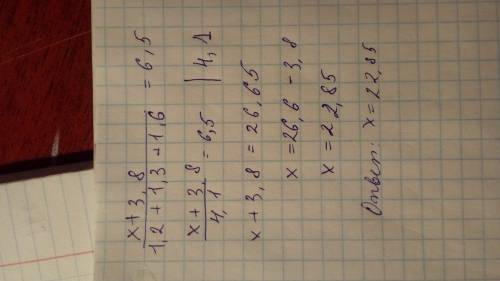 x+3,8 / 1,2+1,3+1,6 = 6,5
x+3,8 / 4,1 = 6,5 | 4,1
x+3,8 = 26,65
x = 26,6 - 3,8
x = 22,85
Ответ: x = 22,85